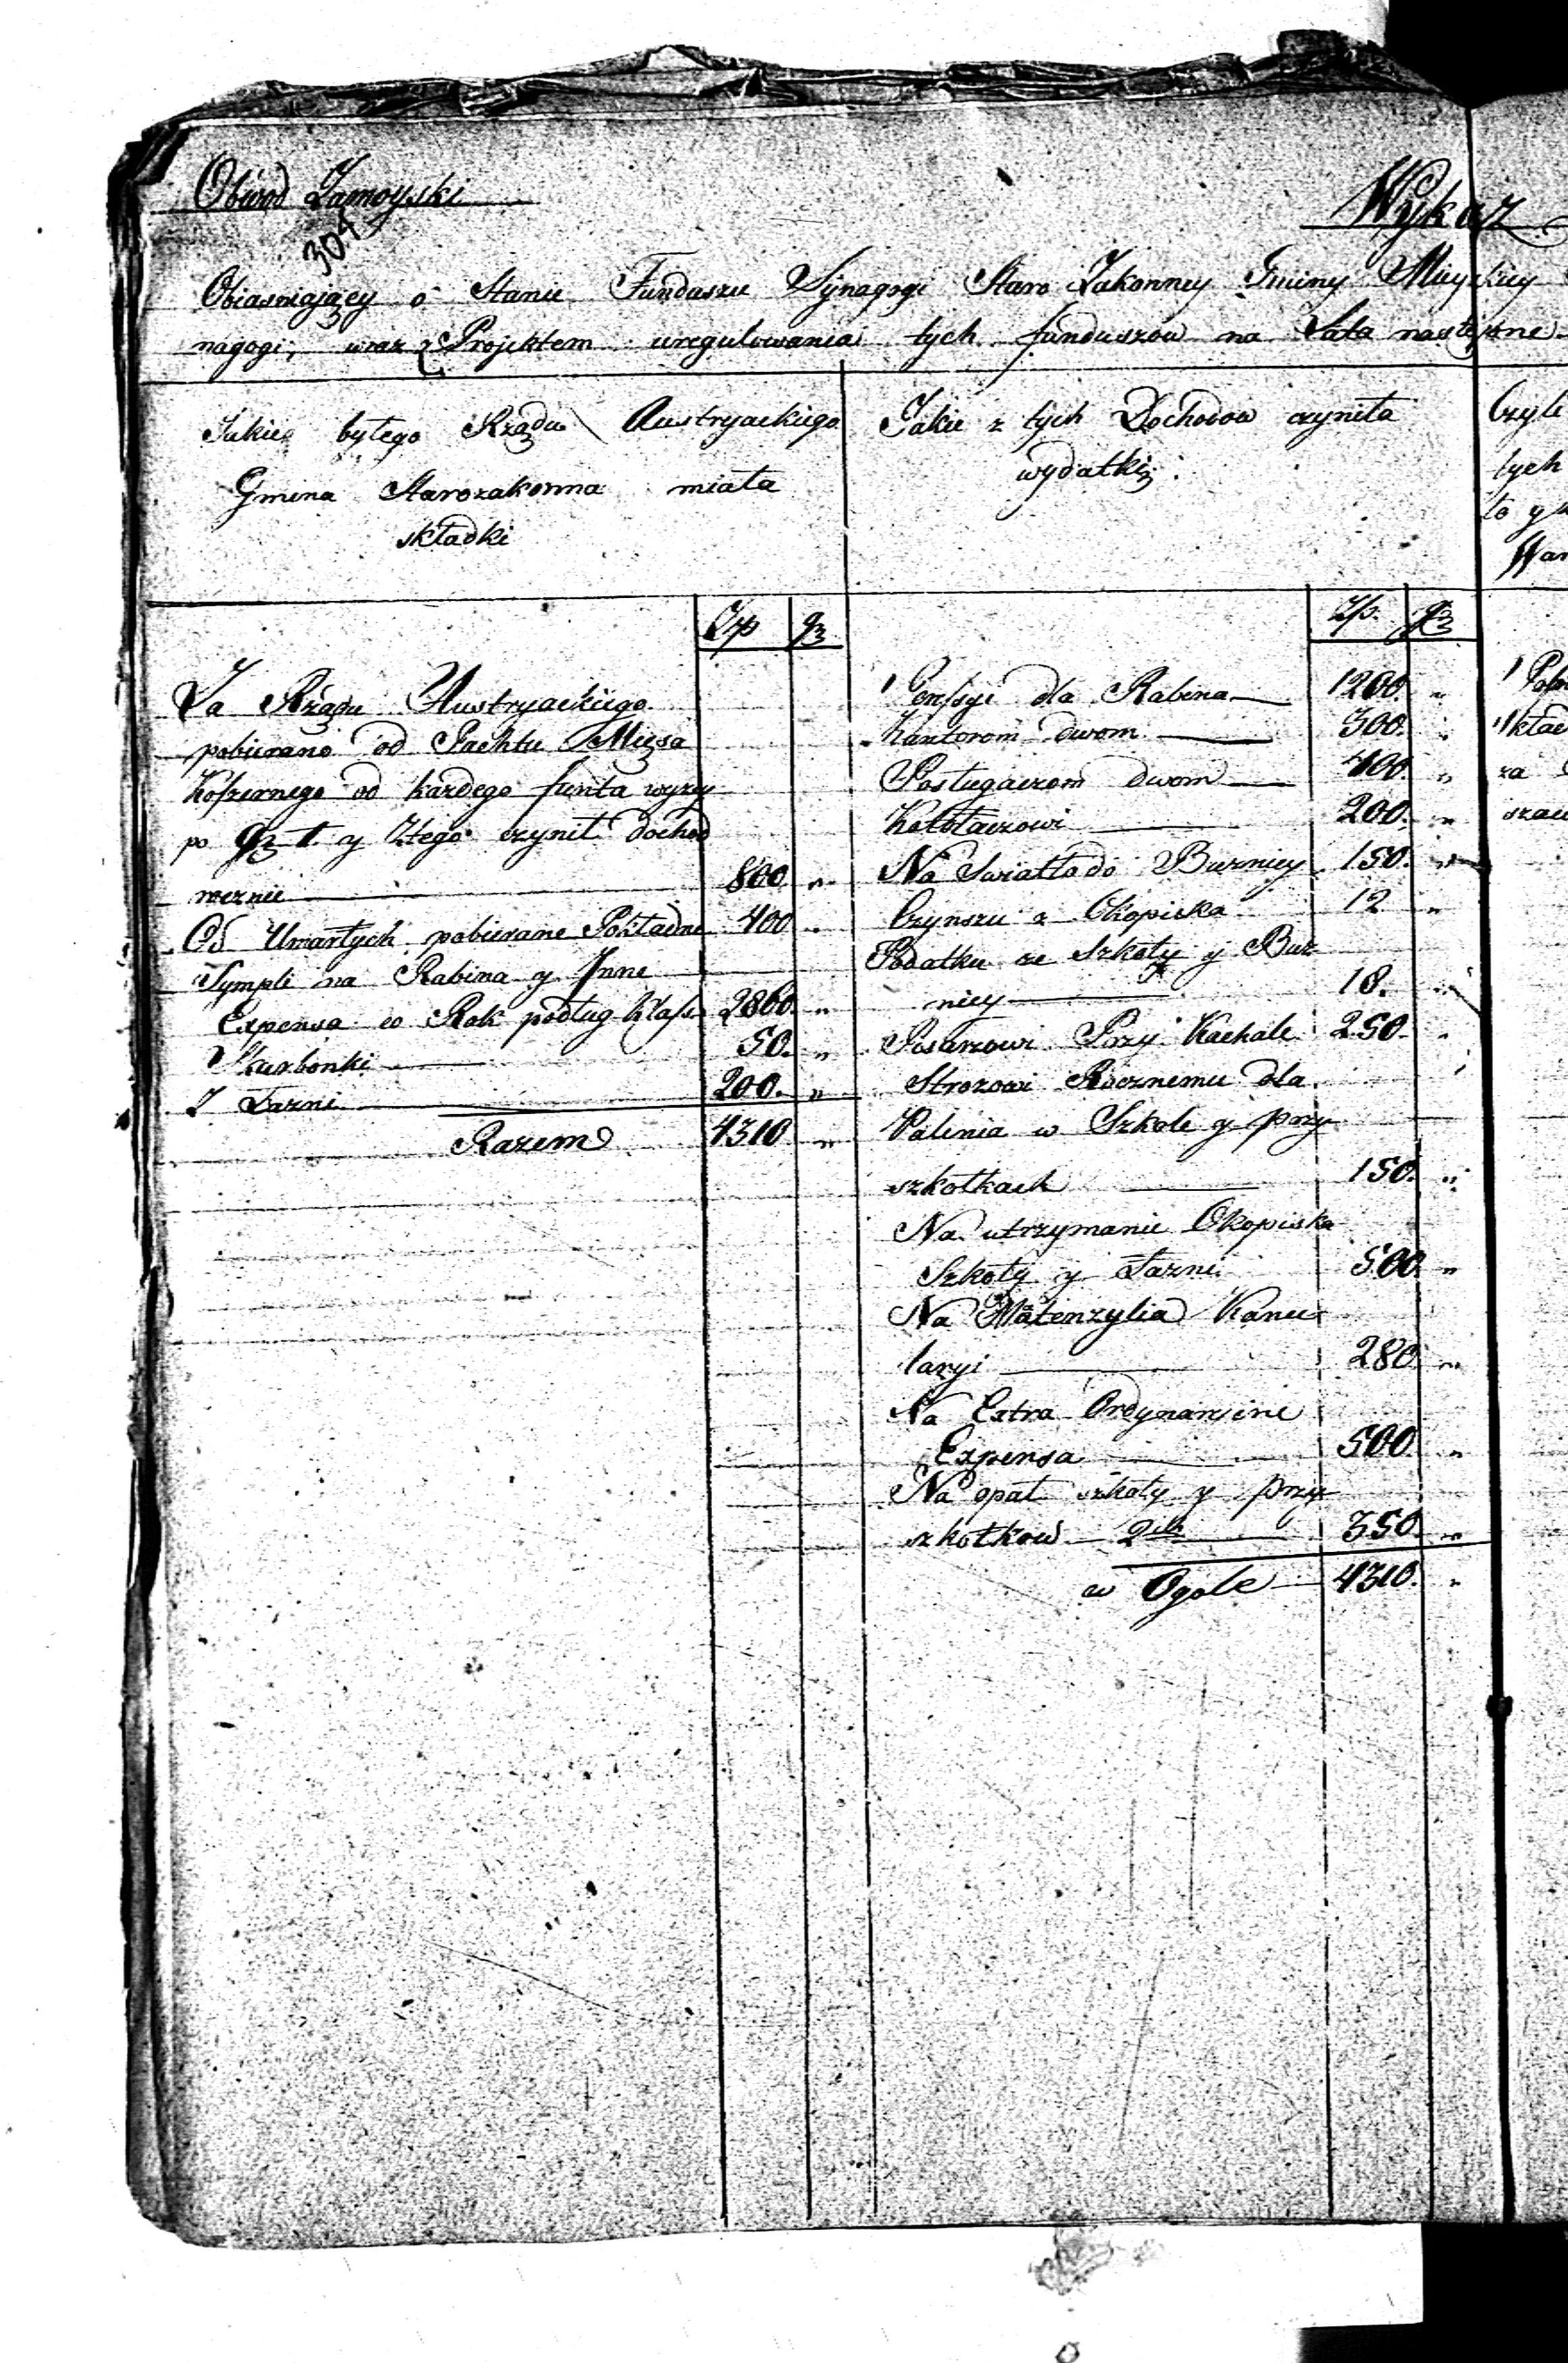 Obwod Zamoyski
Wykaz
304
Obiasniaiący o Stanie Funduszu Synagogi Staro Zakonney Gminy Mieyskiey
nagogi, wraz z Projektem uregulowania tych funduszow na Lata następne
Jakie byłego Rządu Austryackiego
Gmina Starozakonna miała
składki
Jakie z tych Dochodow czyniła
wydatki
Czyli
tych
to y
Złp gr
Za Rządu Austryackiego
pobierano od Pachtu Mięsa
Koszernego od każdego funta wyzey
po gr 1. y Ztego czynił dochod
rocznie 800 "
Od Umarłych pobierane Pokładne 400 "
Sympli na Rabina y Inne
Expensa co Rok podług Klass 2860 "
Skarbonki 50. "
Z Łazni 200. "
Razem 4310 "
Złp. gr
1 Pensyi dla Rabina 1200. "
Kantorom dwom 300. "
Posługaczom dwom 400. "
Kołotaczowi 200. "
Na Swiatło do Buznicy 150. "
Czynszu z Okopiska 12 "
Podatku ze Szkoły y Buz
nicy 18. "
Pisarzowi Przy Kachale 250. "
Strozowi Rocznemu dla
Palenia w Szkole y przy
szkołkach 150. "
Na utrzymanie Okopiska
Szkoły y Łazni 500 "
Na Matenzylia Kance
laryi 280 "
Na Extra Ordynaryine
Expensa 500 "
Na opał szkoły y przy
szkołkow 2ch 350. "
w Ogole 4310. "